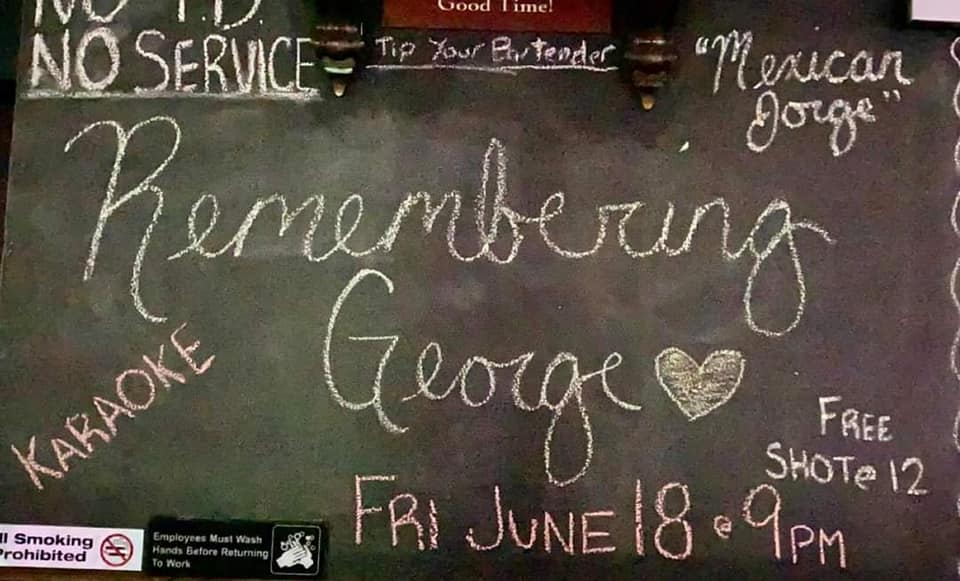 NO I.D.
NO SERVICE
Good Time!
Tip Your Bartender
"Mexican
Jorge"
Remembering
George
KARAOKE
FREE
SHOT @ 12
FRI JUNE 18 @ 9PM
ll Smoking
Prohibited
Employees Must Wash
Hands Before Returning
To Work